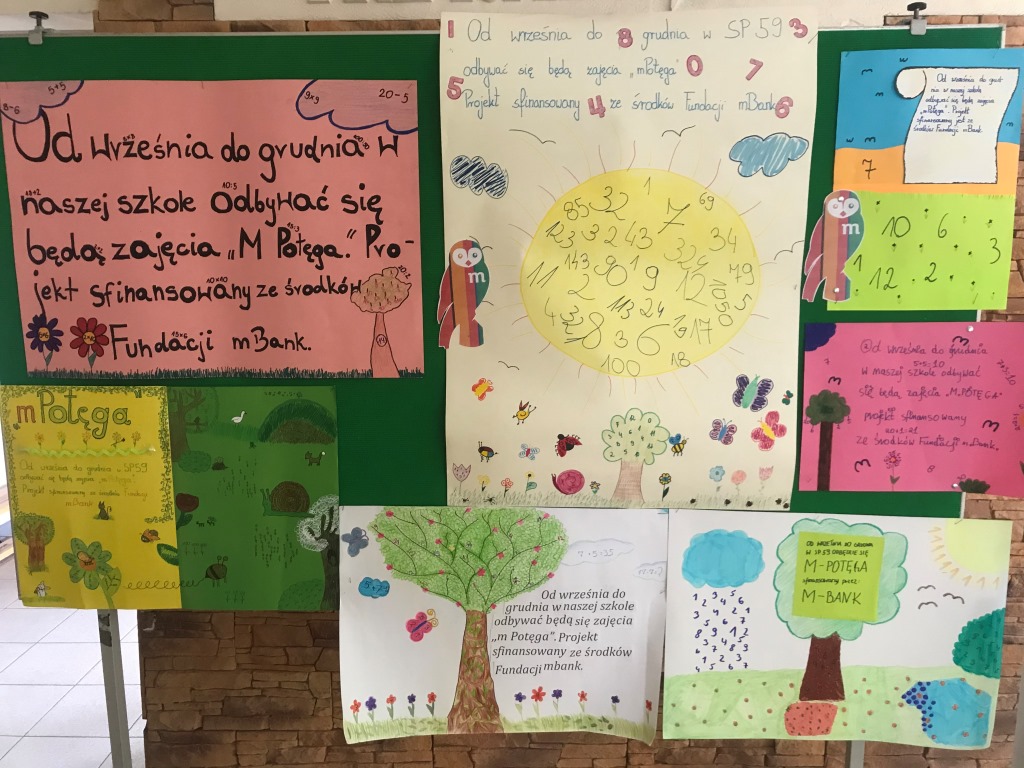 8-6
5+5
9x9
20-5
Od września do grudnia w
naszej szkole odbywać się
będą zajęcia „M Potęga." Pro-
jekt sfinansowany ze środków
Fundacji mBank.
1 Od września do 8 grudnia w SP 59 3
odbywać się będą zajęcia „mPotęga" 0 7
5 Projekt sfinansowany 4 ze środków Fundacji mBank 6
1
85 32 7 69
123 32 43 34
143 9 0 1 9 324
11 12 79
113 24 5
8 3 6 1917
100 18
m
Od września do grud
nia w naszej szkole
odbywać się będą zajęcia
„mPotęga". Projekt
sfinansowany jest ze
środków Fundacji mBank.
7
m
10 6
3
1 12 2
Od września do grudnia
5+5=10
w naszej szkole odbywać
się będą zajęcia "M.POTĘGA"
projekt sfinansowany
20+1=21
ze środków Fundacji mBank.
mPotęga
Od września do grudnia w SP59
odbywać się będą zajęcia "mPotęga"
Projekt sfinansowany ze środków Fundacji
mBank
7·5=35
Od września do
grudnia w naszej szkole
odbywać będą się zajęcia
„m Potęga". Projekt
sfinansowany ze środków
Fundacji mbank.
OD WRZEŚNIA DO GRUDNIA
W SP 59 ODBĘDZIE SIĘ
M-POTĘGA
sfinansowany przez:
M-BANK